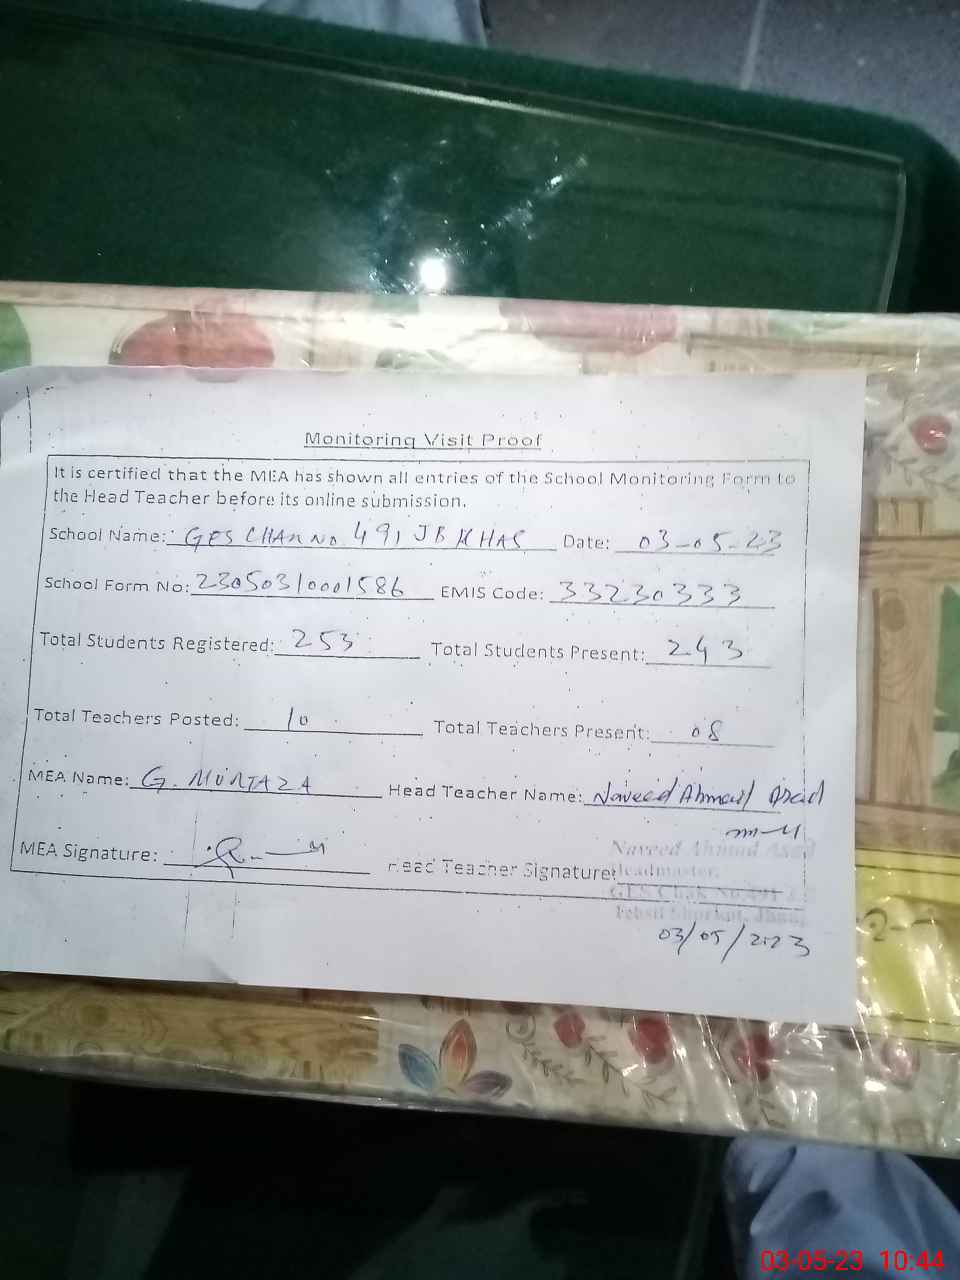 Monitoring Visit Proof
It is certified that the MEA has shown all entries of the School Monitoring Form to
the Head Teacher before its online submission.
School Name: GES CHAK No. 491 JB KHAS Date: 03-05-23
School Form No: 23050310001586 EMIS Code: 33230333
Total Students Registered: 253 Total Students Present: 243
Total Teachers Posted: 10 Total Teachers Present: 08
MEA Name: G. MURTAZA Head Teacher Name: Naveed Ahmad Asad
MEA Signature: Head Teacher Signature:
Naveed Ahmad Asad
Headmaster,
GES Chak No.491 J.B
Tehsil Shorkot, Jhang
03/05/2023
03-05-23 10:44